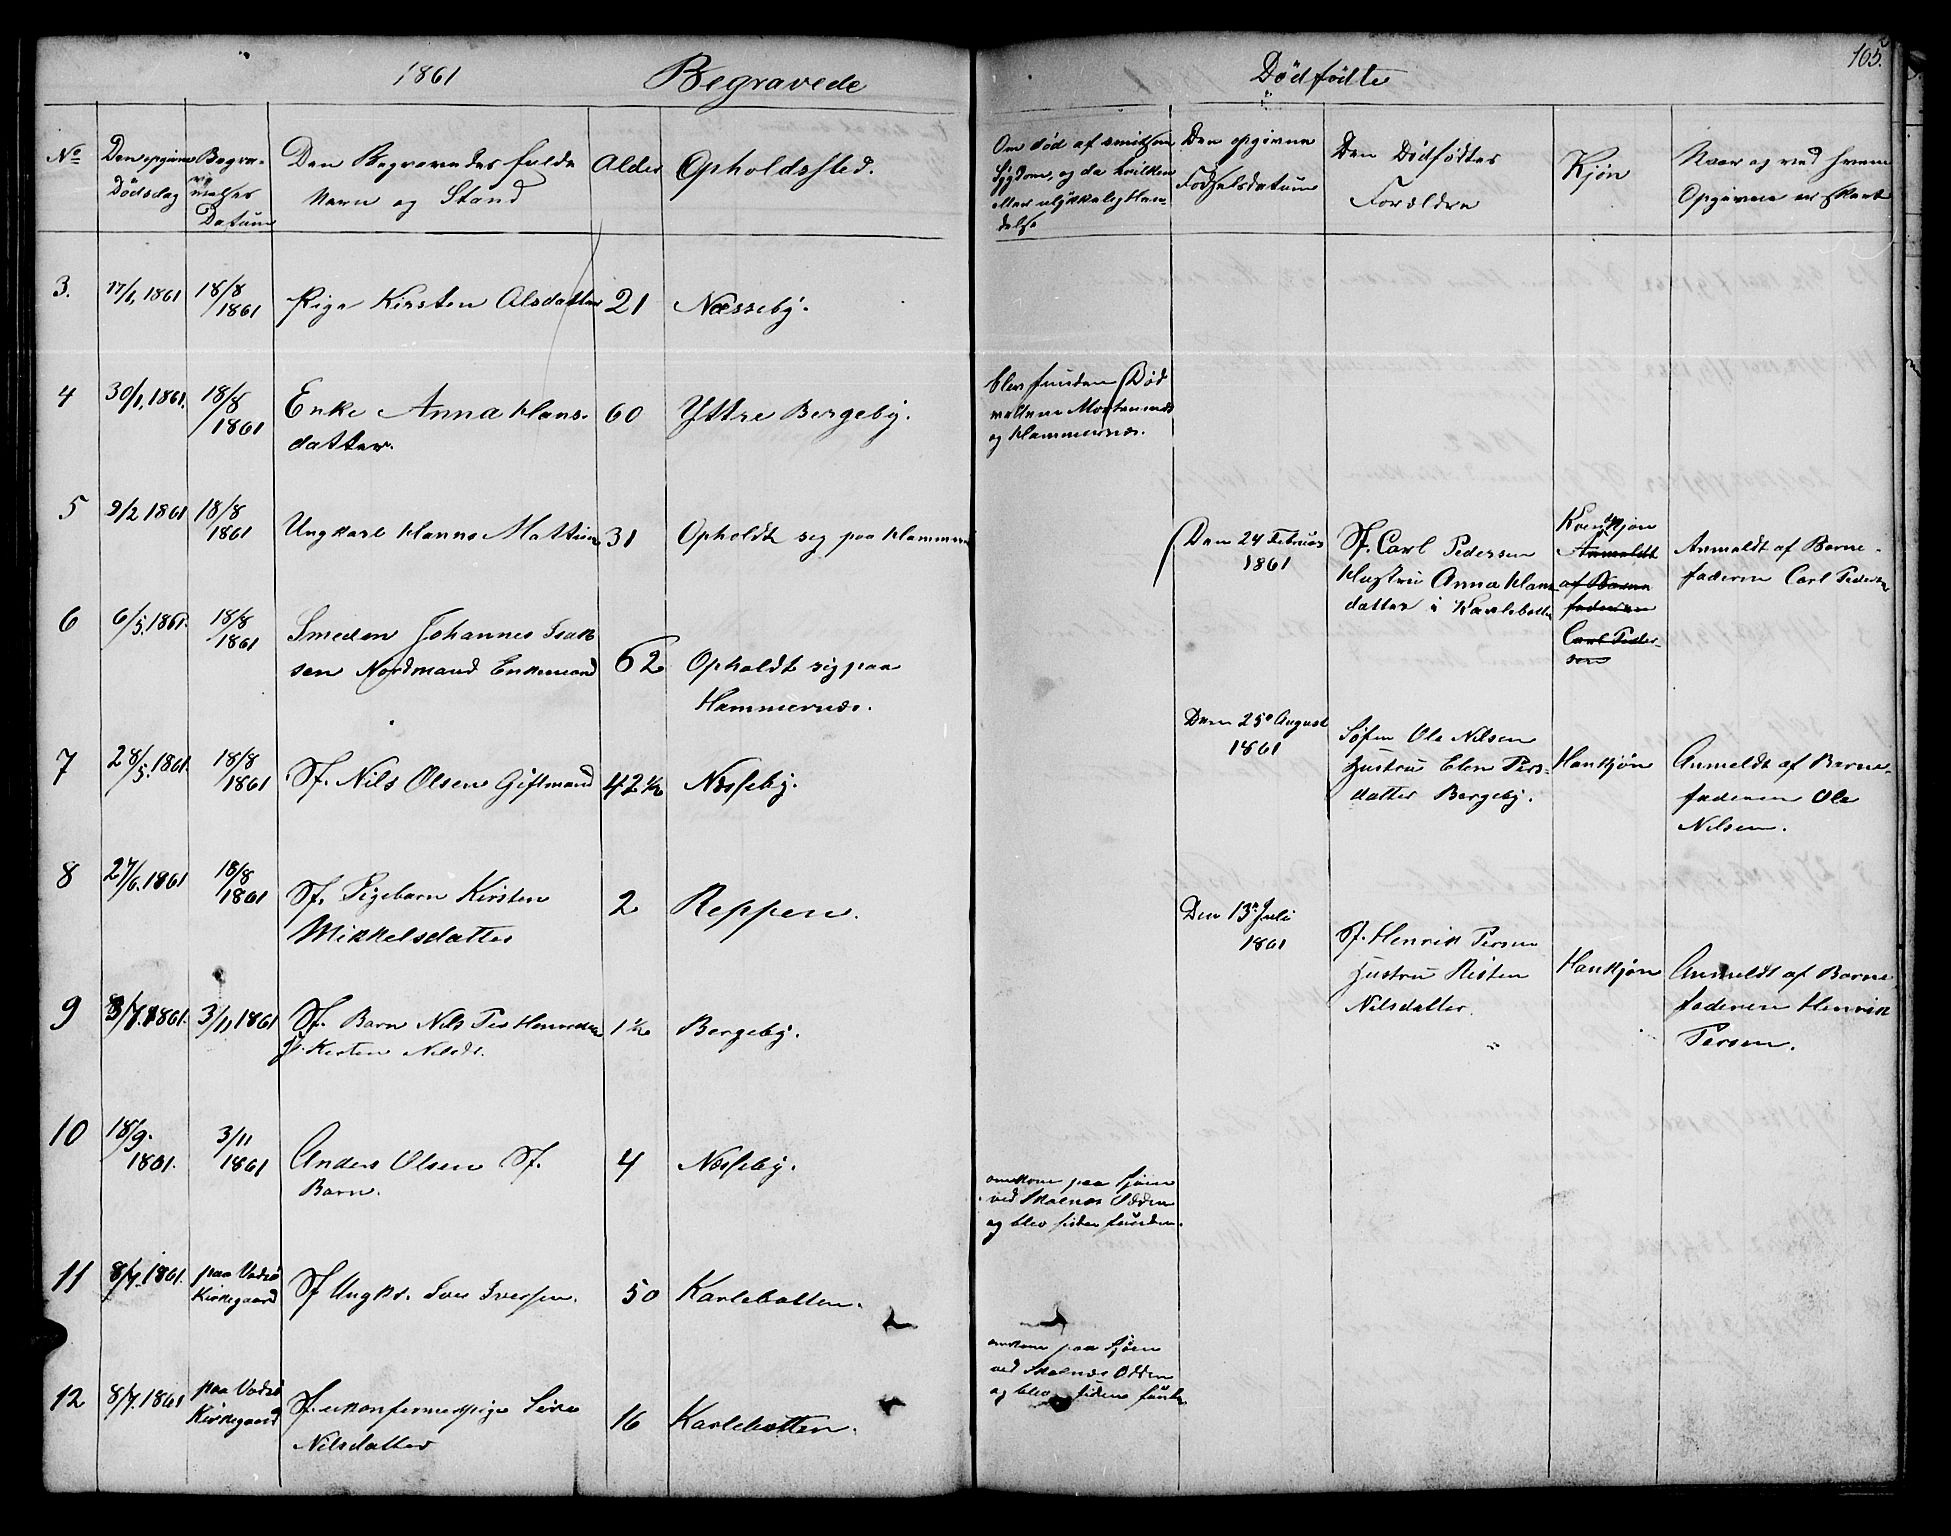 1861 Begravede
No
Den opgivne Dødsdag
Begravelses Datum
Den Begravedes fulde Navn og Stand
Alder
Opholdssted.
3. 17/1, 1861 18/8 1861 Pige Kirsten Olsdatter 21 Næsseby.
4 30/1, 1861. 18/8 1861 Enke Anna Hans-
datter. 60 Yttre Bergeby.
5 9/2 1861 18/8 1861 Ungkarl Hanns Mattisen 31 Opholdt sig paa Hammernæs
6 6/5. 1861. 18/8 1861 Smeden Johannes Isak
sen Nordmand Enkemand 62 Opholdt sig paa
Hammernæs.
7 28/5. 1861. 18/8 1861 Sf. Nils Olsen Giftmand 42 1/2 Næsseby.
8 27/6. 1861 18/8 1861 Sf. Pigebarn Kirsten
Mikkelsdatter 2 Reppen.
9 3/7. 1861. 3/11 1861 Sf. Barn Nils Per Henriksen
Kirsten Nilsdr. 1 1/2 Bergeby.
10 18/9. 1861. 3/11 1861 Anders Olsen Sf.
Barn. 4 Næsseby.
11 8/7. 1861. paa Vadsø
Kirkegaard Sf Ungkr. Iver Iversen. 50 Karlebotten.
12 8/7. 1861 paa Vadsø
Kirkegaard Sf. ukonfirm. pige Siri
Nilsdatter 16 Karlebotten.
Dødfødte
165.
Om død af smitsom
Sygdom, og da hvilken
eller ulykkelig Hæn-
delse
Den opgivne
Fødselsdatum
Den Dødfødtes
Forældre
Kjøn
Naar og ved hvem
Opgivne er skeet
blev funden Død
mellem Mortensnæs
og Hammernæs.
Den 24 Februar
1861
Sf. Carl Pedersen
Hustru Anna Hans
datter i Karlebotten
Kvindkjøn
Anmeldt
af Barne
faderen
Carl Peder-
sen
Anmeldt af Barne-
faderen Carl Pedersen
Den 25de August
1861
Søfin Ole Nilsen
Hustru Elen Pers-
datter Bergeby.
Hankjøn
Anmeldt af Barne-
faderen Ole
Nilsen.
Den 13de Juli
1861
Sf. Henrik Persen
Hustru Kirsten
Nilsdatter.
Hankjøn
Anmeldt af Barne-
faderen Henrik
Persen.
omkom paa Sjøen
ved Skalnæs Odden
og blev siden funden.
omkom paa Sjøen
ved Skalnæs Odden
og blev siden funden